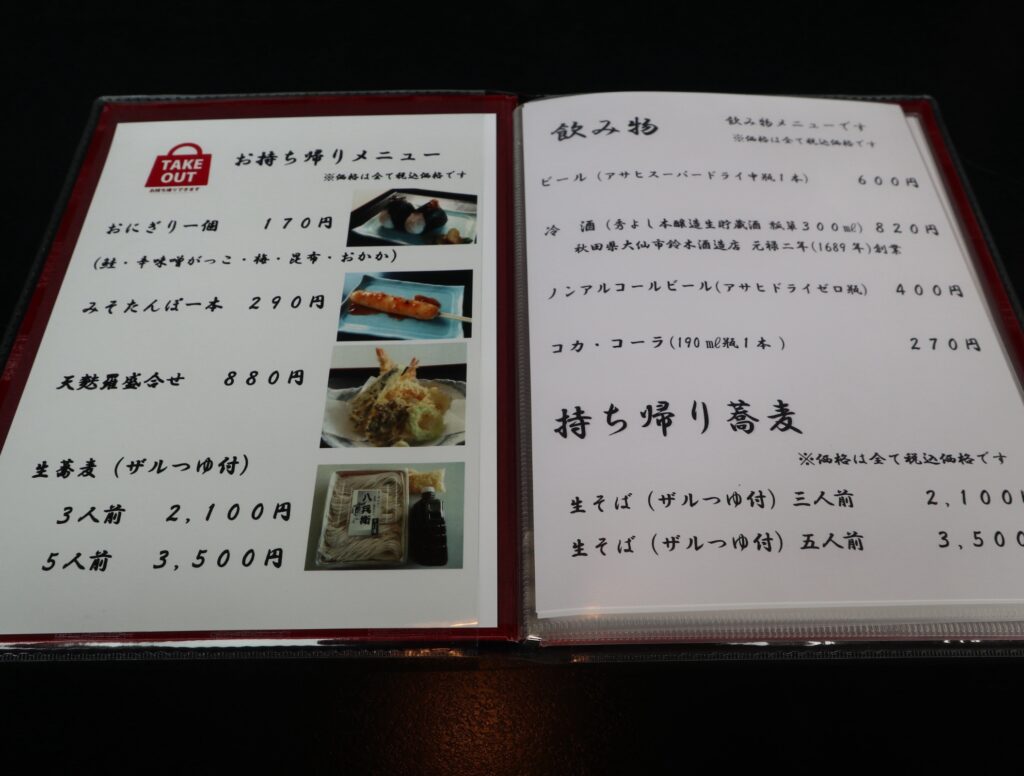 TAKE
OUT
お持ち帰りできます
お持ち帰りメニュー
※価格は全て税込価格です
おにぎり一個 170円
(鮭・辛味噌がっこ・梅・昆布・おかか)
みそたんぽ一本 290円
天麩羅盛合せ 880円
生蕎麦(ザルつゆ付)
3人前 2,100円
5人前 3,500円
八兵衛
飲み物
飲み物メニューです
※価格は全て税込価格です
ビール(アサヒスーパードライ中瓶1本) 600円
冷 酒(秀よし本醸造生貯蔵酒 瓶單300㎖)820円
秋田県大仙市鈴木酒造店 元禄二年(1689年)創業
ノンアルコールビール(アサヒドライゼロ瓶) 400円
コカ・コーラ(190㎖瓶1本) 270円
持ち帰り蕎麦
※価格は全て税込価格です
生そば(ザルつゆ付)三人前 2,100
生そば(ザルつゆ付)五人前 3,500